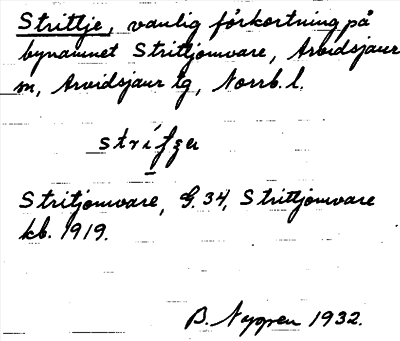 Strittje, vanlig förkortning på
bynamnet Strittjomvare, Arvidsjaur
sn, Arvidsjaur tg, Norrb. l.
Stritjomvare, G. 34, Strittjomvare
kb. 1919.
B. Nygren 1932.